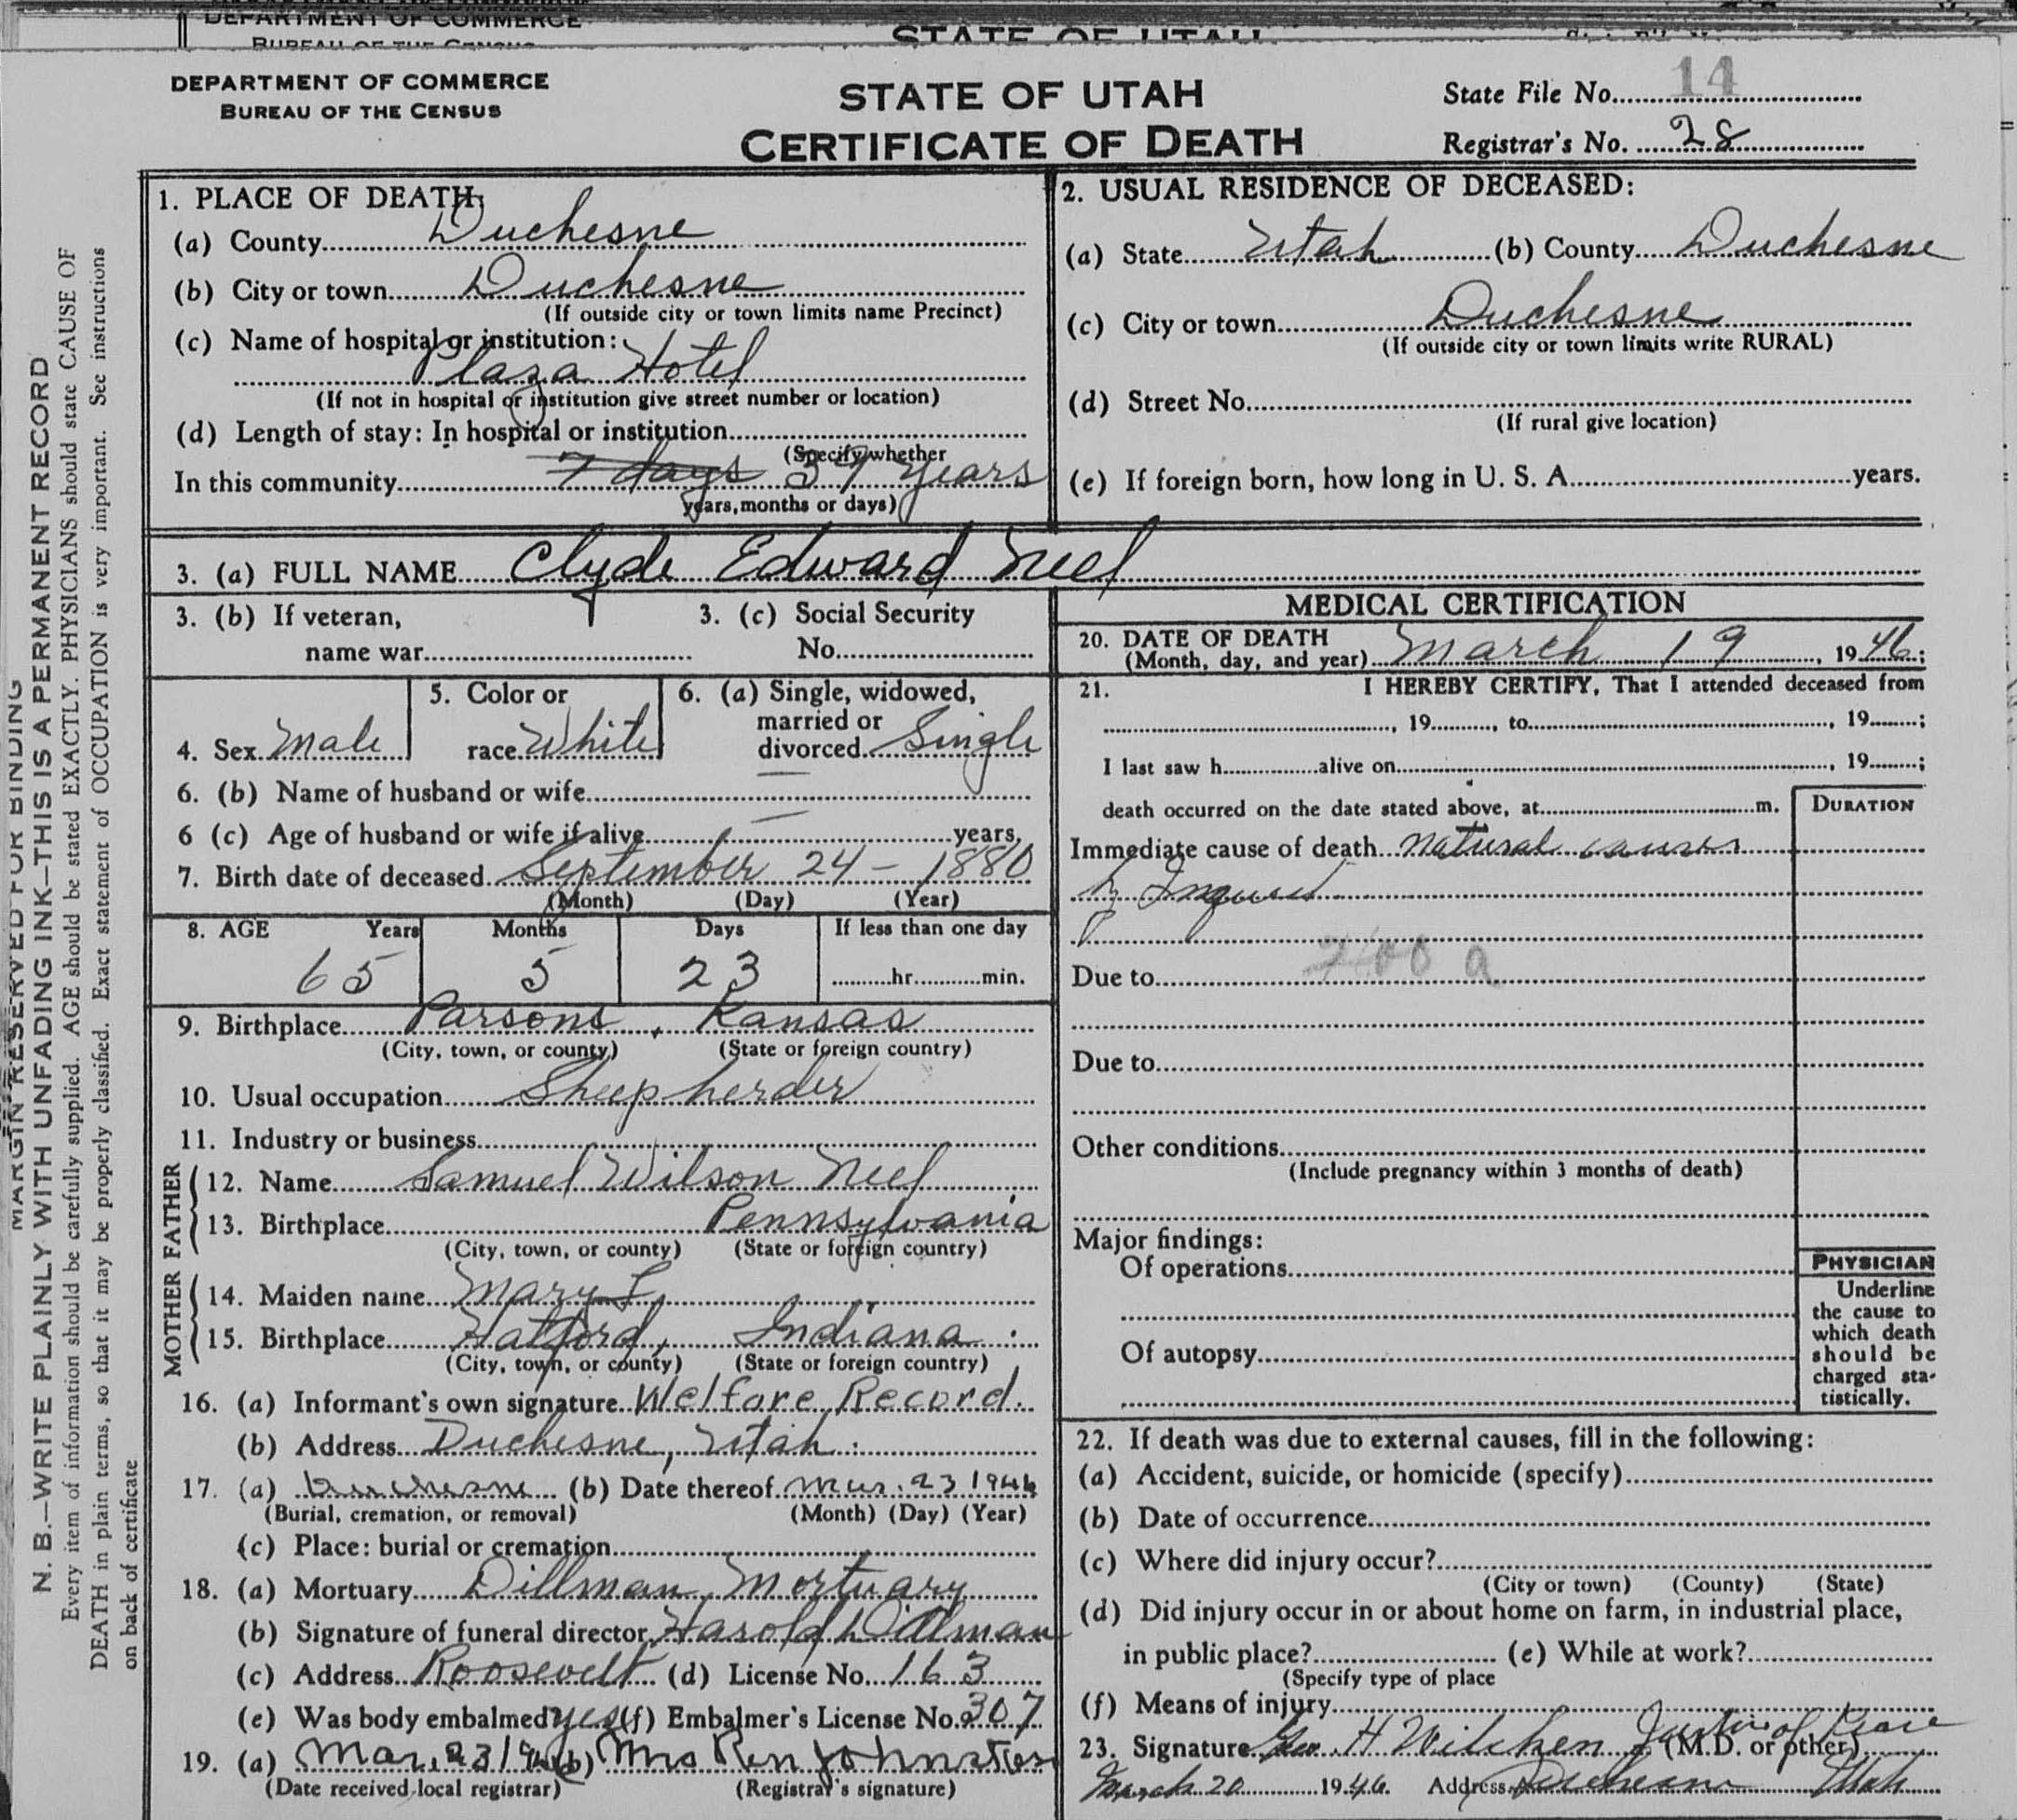 DEPARTMENT OF COMMERCE
BUREAU OF THE CENSUS
STATE OF UTAH
DEPARTMENT OF COMMERCE
BUREAU OF THE CENSUS
STATE OF UTAH
CERTIFICATE OF DEATH
State File No. 14
Registrar's No. 28
MARGIN RESERVED FOR BINDING
N. B.—WRITE PLAINLY WITH UNFADING INK—THIS IS A PERMANENT RECORD
Every item of information should be carefully supplied. AGE should be stated EXACTLY. PHYSICIANS should state CAUSE OF
DEATH in plain terms, so that it may be properly classified. Exact statement of OCCUPATION is very important. See instructions
on back of certificate
1. PLACE OF DEATH:
(a) County Duchesne
(b) City or town Duchesne
(If outside city or town limits name Precinct)
(c) Name of hospital or institution:
Plaza Hotel
(If not in hospital or institution give street number or location)
(d) Length of stay: In hospital or institution
(Specify whether
In this community 7 days 37 years
years, months or days)
2. USUAL RESIDENCE OF DECEASED:
(a) State Utah (b) County Duchesne
(c) City or town Duchesne
(If outside city or town limits write RURAL)
(d) Street No.
(If rural give location)
(e) If foreign born, how long in U. S. A. years.
3. (a) FULL NAME Clyde Edward Neel
3. (b) If veteran,
name war
3. (c) Social Security
No.
4. Sex Male
5. Color or
race White
6. (a) Single, widowed,
married or
divorced Single
6. (b) Name of husband or wife —
6 (c) Age of husband or wife if alive — years,
7. Birth date of deceased September 24 - 1880
(Month) (Day) (Year)
8. AGE Years Months Days If less than one day
65 5 23 hr. min.
9. Birthplace Parsons, Kansas
(City, town, or county) (State or foreign country)
10. Usual occupation Sheepherder
11. Industry or business
FATHER
12. Name Samuel Wilson Neel
13. Birthplace Pennsylvania
(City, town, or county) (State or foreign country)
MOTHER
14. Maiden name Mary L.
15. Birthplace Hatford, Indiana
(City, town, or county) (State or foreign country)
16. (a) Informant's own signature Welfare Record.
(b) Address Duchesne, Utah
17. (a) Duchesne (b) Date thereof Mar. 23 1946
(Burial, cremation, or removal) (Month) (Day) (Year)
(c) Place: burial or cremation
18. (a) Mortuary Dillman Mortuary
(b) Signature of funeral director Harold Dillman
(c) Address Roosevelt (d) License No. 163
(e) Was body embalmed yes (f) Embalmer's License No. 307
19. (a) Mar. 23 1946 (b) Mrs Ren Johnston
(Date received local registrar) (Registrar's signature)
MEDICAL CERTIFICATION
20. DATE OF DEATH
(Month, day, and year) March 19, 1946;
21. I HEREBY CERTIFY, That I attended deceased from
, 19 , to , 19 ;
I last saw h alive on , 19 ;
death occurred on the date stated above, at m.
DURATION
Immediate cause of death natural causes
by Inquest
Due to
Due to
Other conditions
(Include pregnancy within 3 months of death)
Major findings:
Of operations
Of autopsy
PHYSICIAN
Underline
the cause to
which death
should be
charged sta-
tistically.
22. If death was due to external causes, fill in the following:
(a) Accident, suicide, or homicide (specify)
(b) Date of occurrence
(c) Where did injury occur?
(City or town) (County) (State)
(d) Did injury occur in or about home on farm, in industrial place,
in public place? (e) While at work?
(Specify type of place
(f) Means of injury
23. Signature Geo. H Wilchen Justice of Peace (M.D. or other)
March 20 1946. Address Duchesne Utah